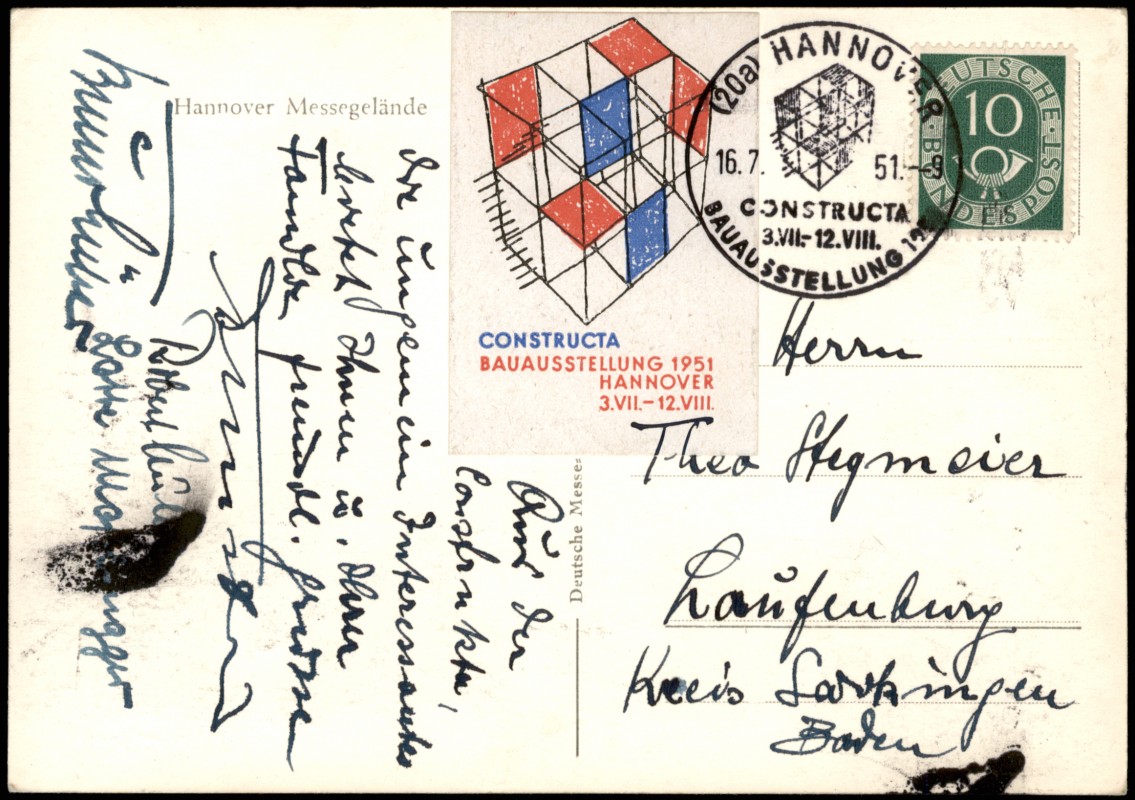 Hannover Messegelände
Aus der
Constructa,
die ungemein Interessantes
bietet Ihnen u. Ihrer
Familie freundl. Grüsse
Robert
Lotte
CONSTRUCTA
BAUAUSSTELLUNG 1951
HANNOVER
3.VII.–12.VIII.
(20a) HANNOVER
16.7. 51.–9
CONSTRUCTA
3.VII.–12.VIII.
BAUAUSSTELLUNG 1951
DEUTSCHE BUNDESPOST
10
Deutsche Messe-
Herrn
Theo Stegmeier
Laufenburg
Kreis Säckingen
Baden